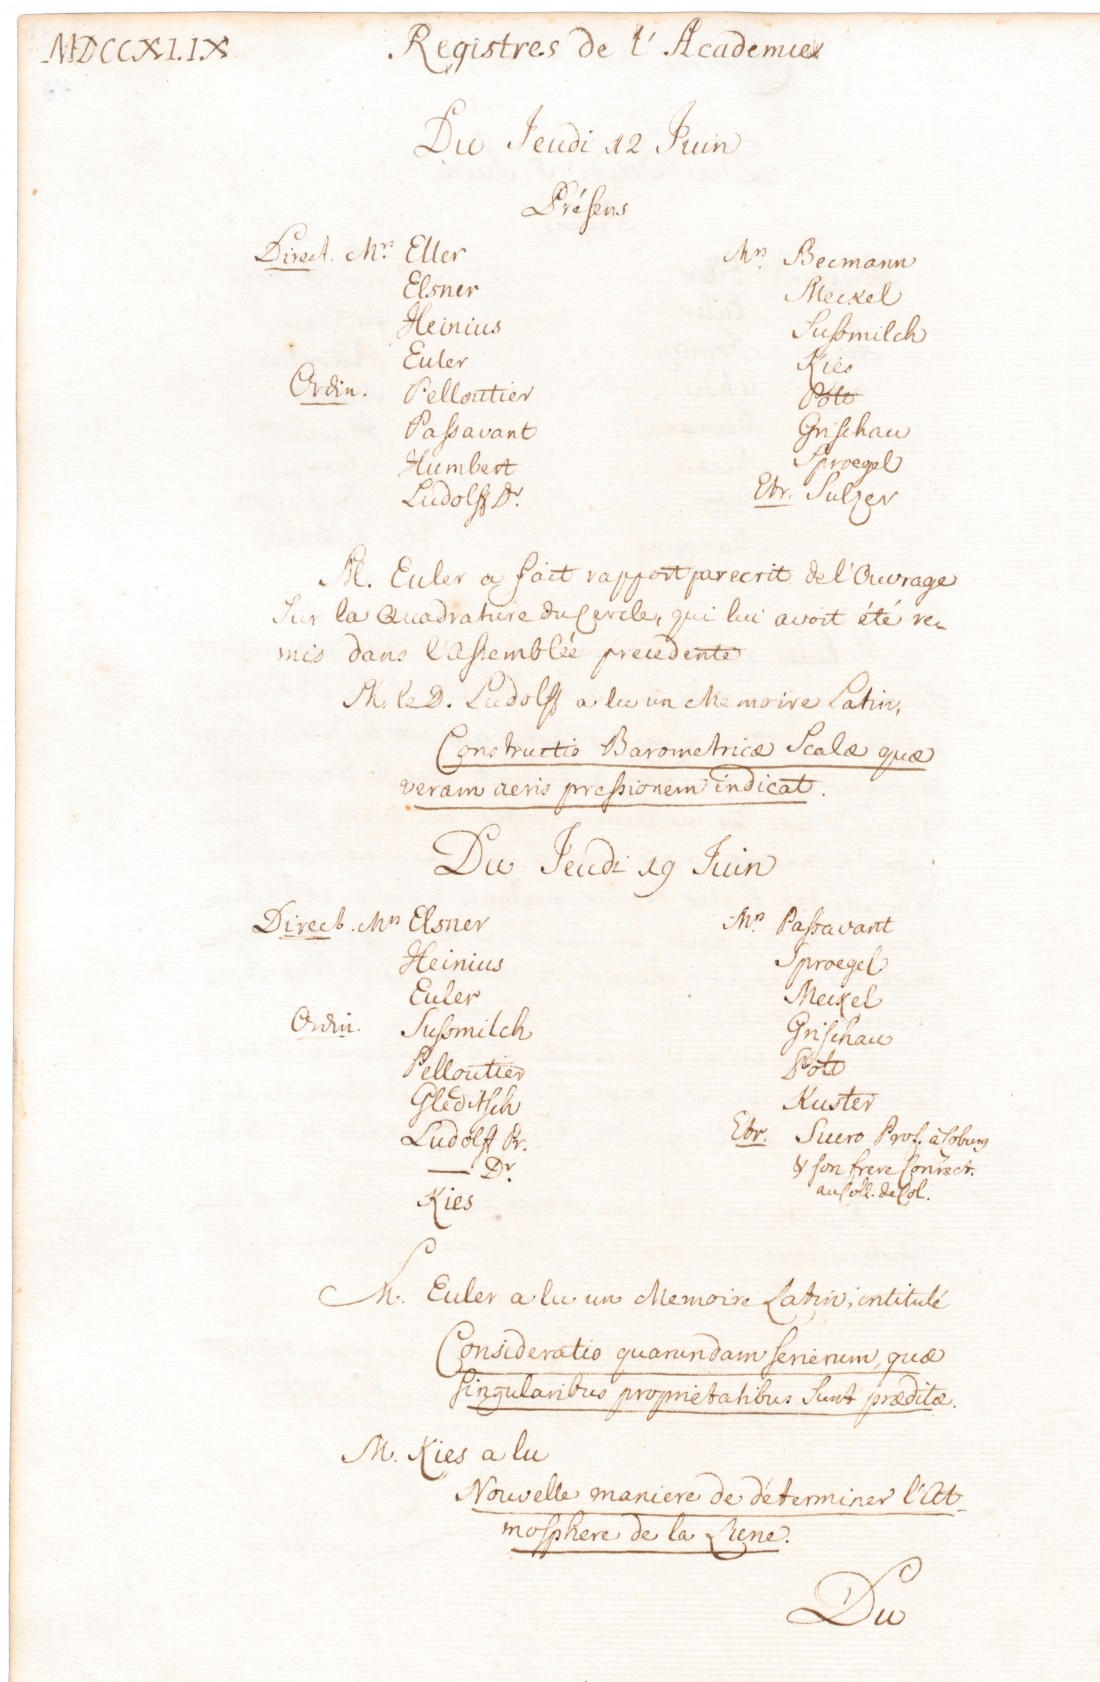 MDCCXLIX
Registres de l'Academie
Du Jeudi 12 Juin
Présens
Direct. Mrs Eller
Elsner
Heinius
Euler
Ordin. Pelloutier
Passavant
Humbert
Ludolff Dr
Mrs. Becmann
Meckel
Sussmilch
Kies
Pott
Grischau
Sproegel
Etr. Sulzer
M. Euler a fait rapport par ecrit de l'Ouvrage
sur la Quadrature du Cercle, qui lui avoit été re-
mis dans l'Assemblée precedente
M. le D. Ludolff a lu un Memoire Latin,
Constructio Barometricæ Scalæ quæ
veram aeris pressionem indicat.
Du Jeudi 19 Juin
Direct. Mrs Elsner
Heinius
Euler
Ordin. Sussmilch
Pelloutier
Gleditsch
Ludolff Pr.
— Dr.
Kies
Mrs. Passavant
Sproegel
Meckel
Grischau
Pott
Kuster
Etr. Sucro Prof. à Coburg
& son frere Conrect.
au Coll. de Col.
M. Euler a lu un Memoire Latin, intitulé
Consideratio quarundam serierum, quæ
singularibus proprietatibus sunt præditæ.
M. Kies a lu
Nouvelle maniere de déterminer l'At-
mosphere de la Lune.
Du